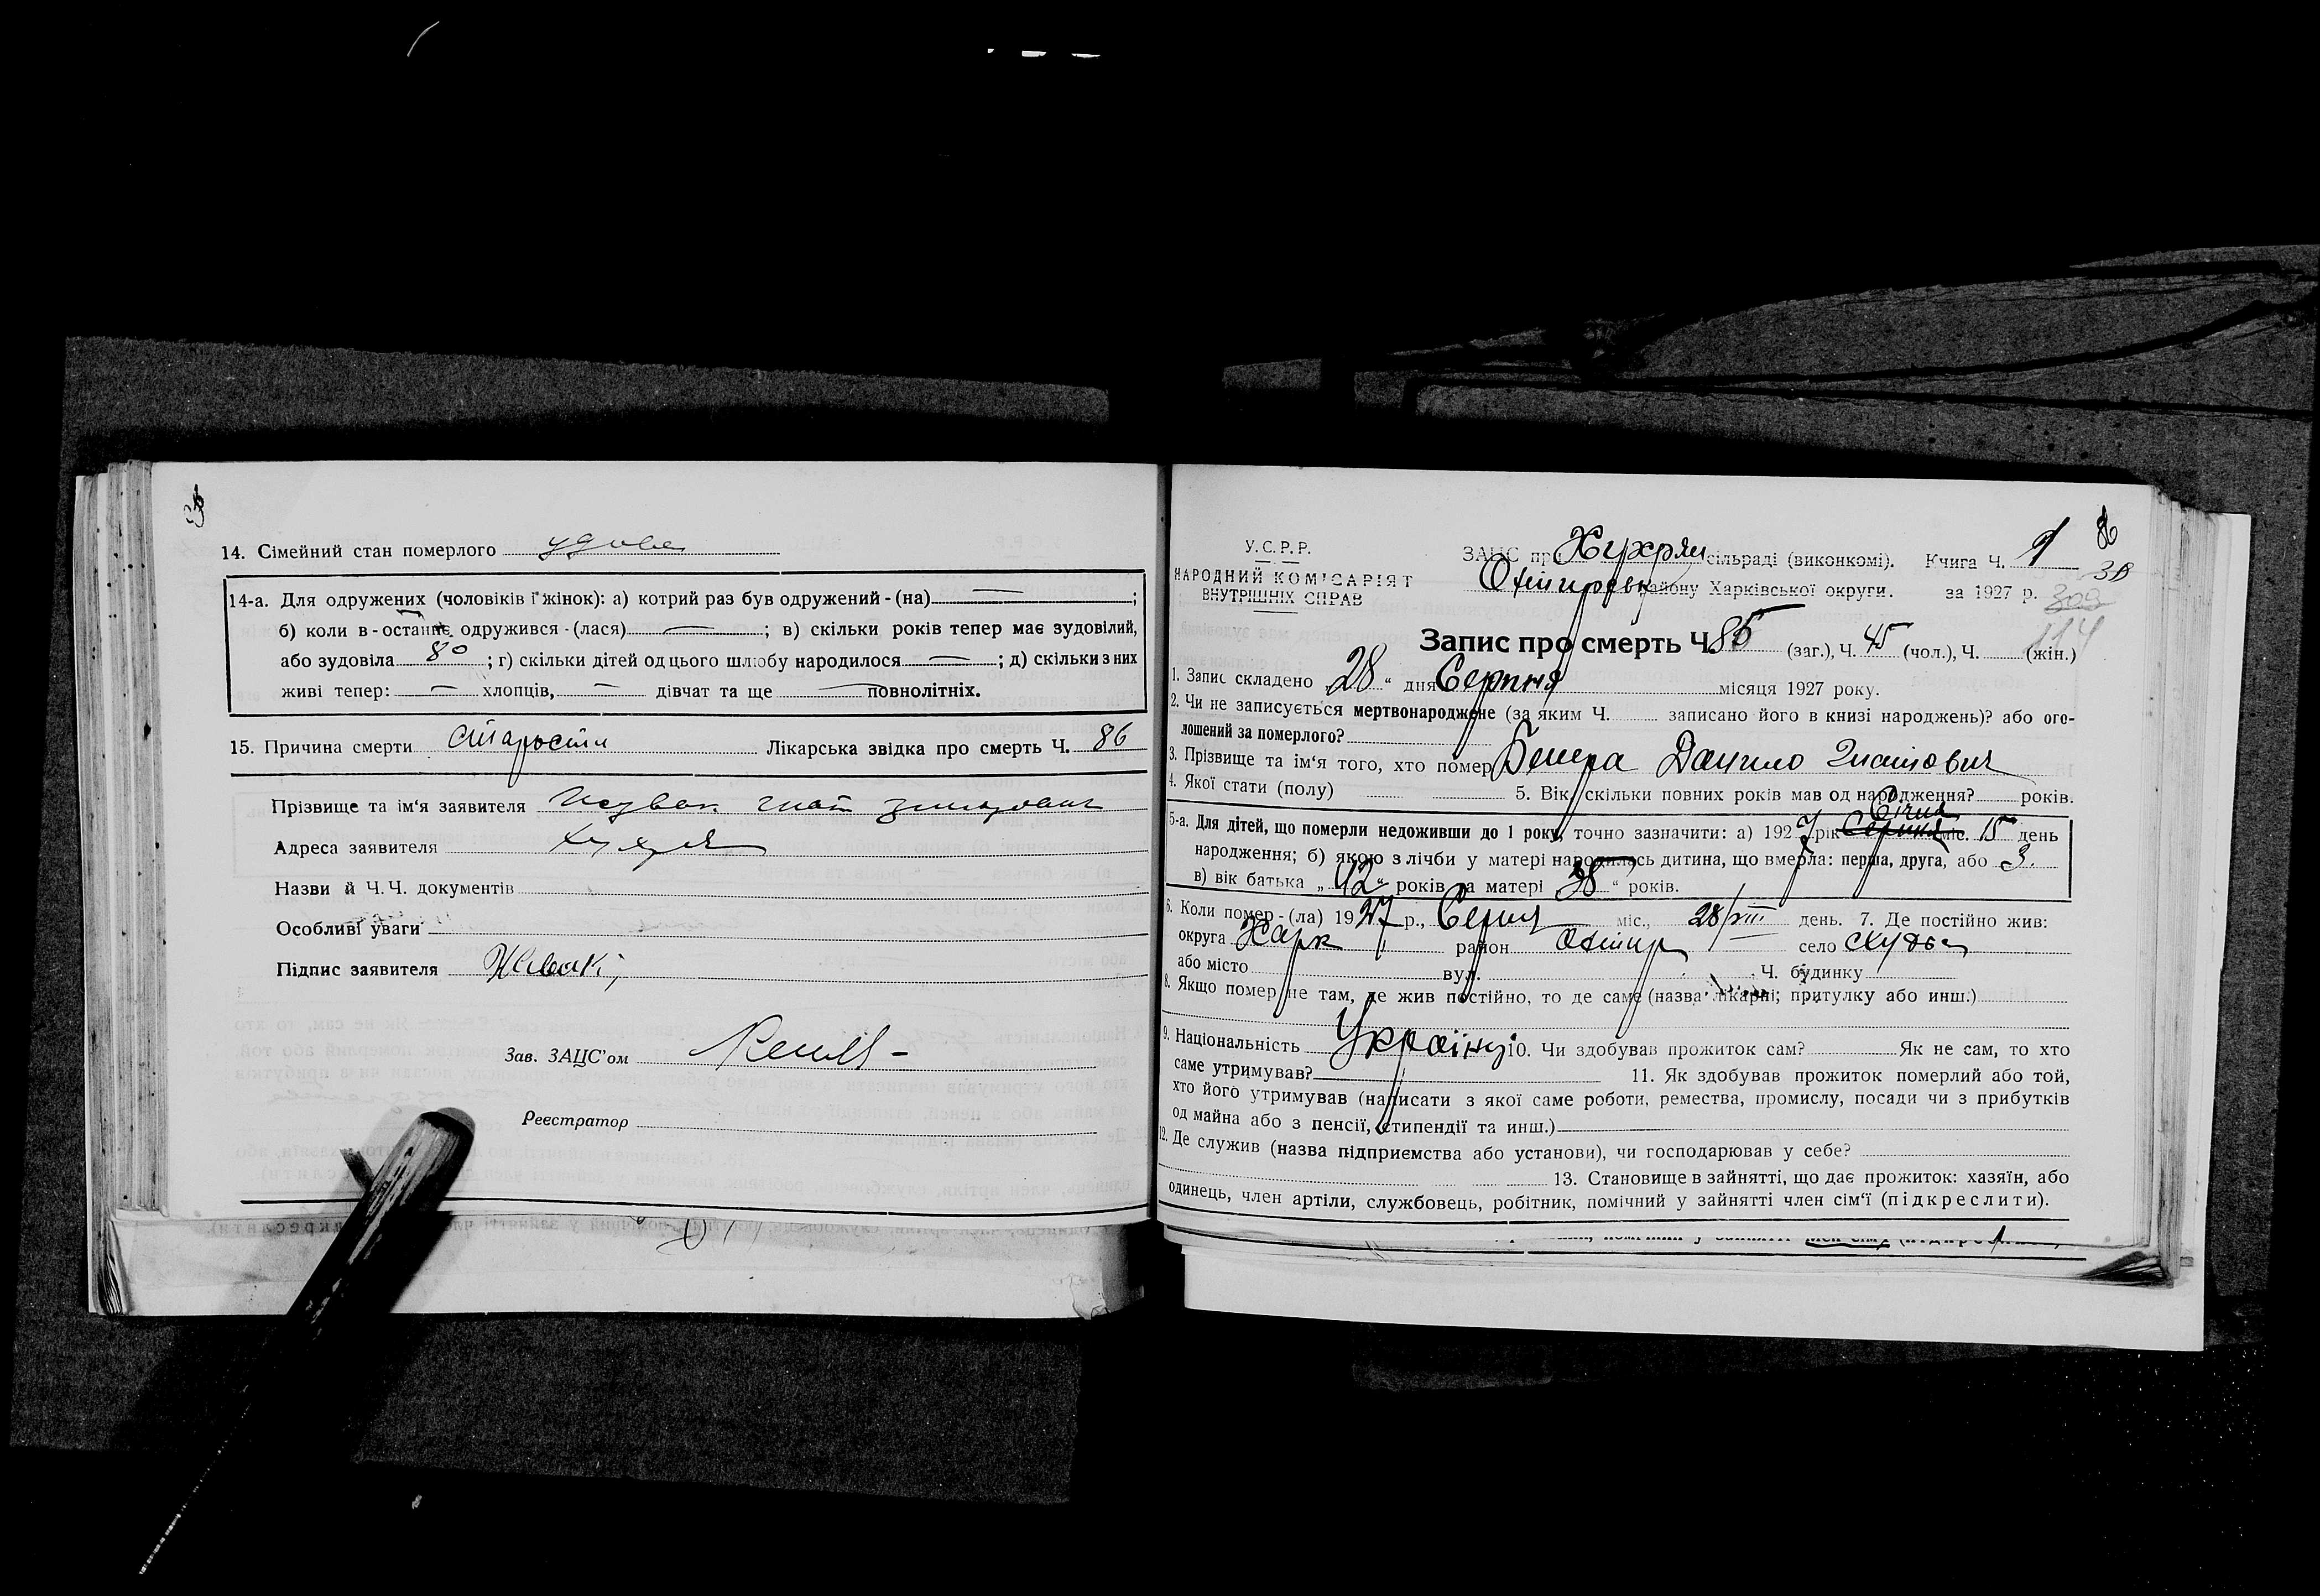 14. Сімейний стан померлого удова
14-а. Для одружених (чоловіків і жінок): а) котрий раз був одружений-(на) — ;
б) коли в-останнє одружився-(лася) — ; в) скільки років тепер має зудовілий,
або зудовіла 80 ; г) скільки дітей од цього шлюбу народилося — ; д) скільки з них
живі тепер: — хлопців, — дівчат та ще — повнолітніх.
15. Причина смерти старости Лікарська звідка про смерть Ч. 86
Прізвище та ім'я заявителя гнат
Адреса заявителя
Назви й Ч.Ч. документів
Особливі уваги
Підпис заявителя
Зав. ЗАЦС'ом
Реєстратор
У.С.Р.Р.
НАРОДНИЙ КОМІСАРІЯТ
ВНУТРІШНІХ СПРАВ
ЗАЦС при Хухрян сільраді (виконкомі). Книга Ч. 1
району Харківської округи. за 1927 р.
Запис про смерть Ч. 85 (заг.), Ч. 45 (чол.), Ч. (жін.)
114
1. Запис складено „28“ дня Серпня місяця 1927 року.
2. Чи не записується мертвонароджене (за яким Ч. записано його в книзі народжень)? або ого-
лошений за померлого?
3. Прізвище та ім'я того, хто помер Данило Гнатович
4. Якої стати (полу) 5. Вік, скільки повних років мав од народження? років.
5-а. Для дітей, що померли недоживши до 1 року, точно зазначити: а) 1927 рік Січня міс. 15 день
народження; б) якою з лічби у матері народилась дитина, що вмерла: перша, друга, або 3.
в) вік батька „42“ років та матері „38“ років.
6. Коли помер-(ла) 1927 р., Серпн міс., 28/VIII день. 7. Де постійно жив:
округа Харк район Охтир село
або місто вул. Ч. будинку
8. Якщо помер не там, де жив постійно, то де саме (назва лікарні; притулку або инш.)
9. Національність Україну 10. Чи здобував прожиток сам? Як не сам, то хто
саме утримував? 11. Як здобував прожиток померлий або той,
хто його утримував (написати з якої саме роботи, ремества, промислу, посади чи з прибутків
од майна або з пенсії, стипендії та инш.)
12. Де служив (назва підприємства або установи), чи господарював у себе?
13. Становище в зайнятті, що дає прожиток: хазяїн, або
одинець, член артіли, службовець, робітник, помічний у зайнятті член сім'ї (підкреслити).